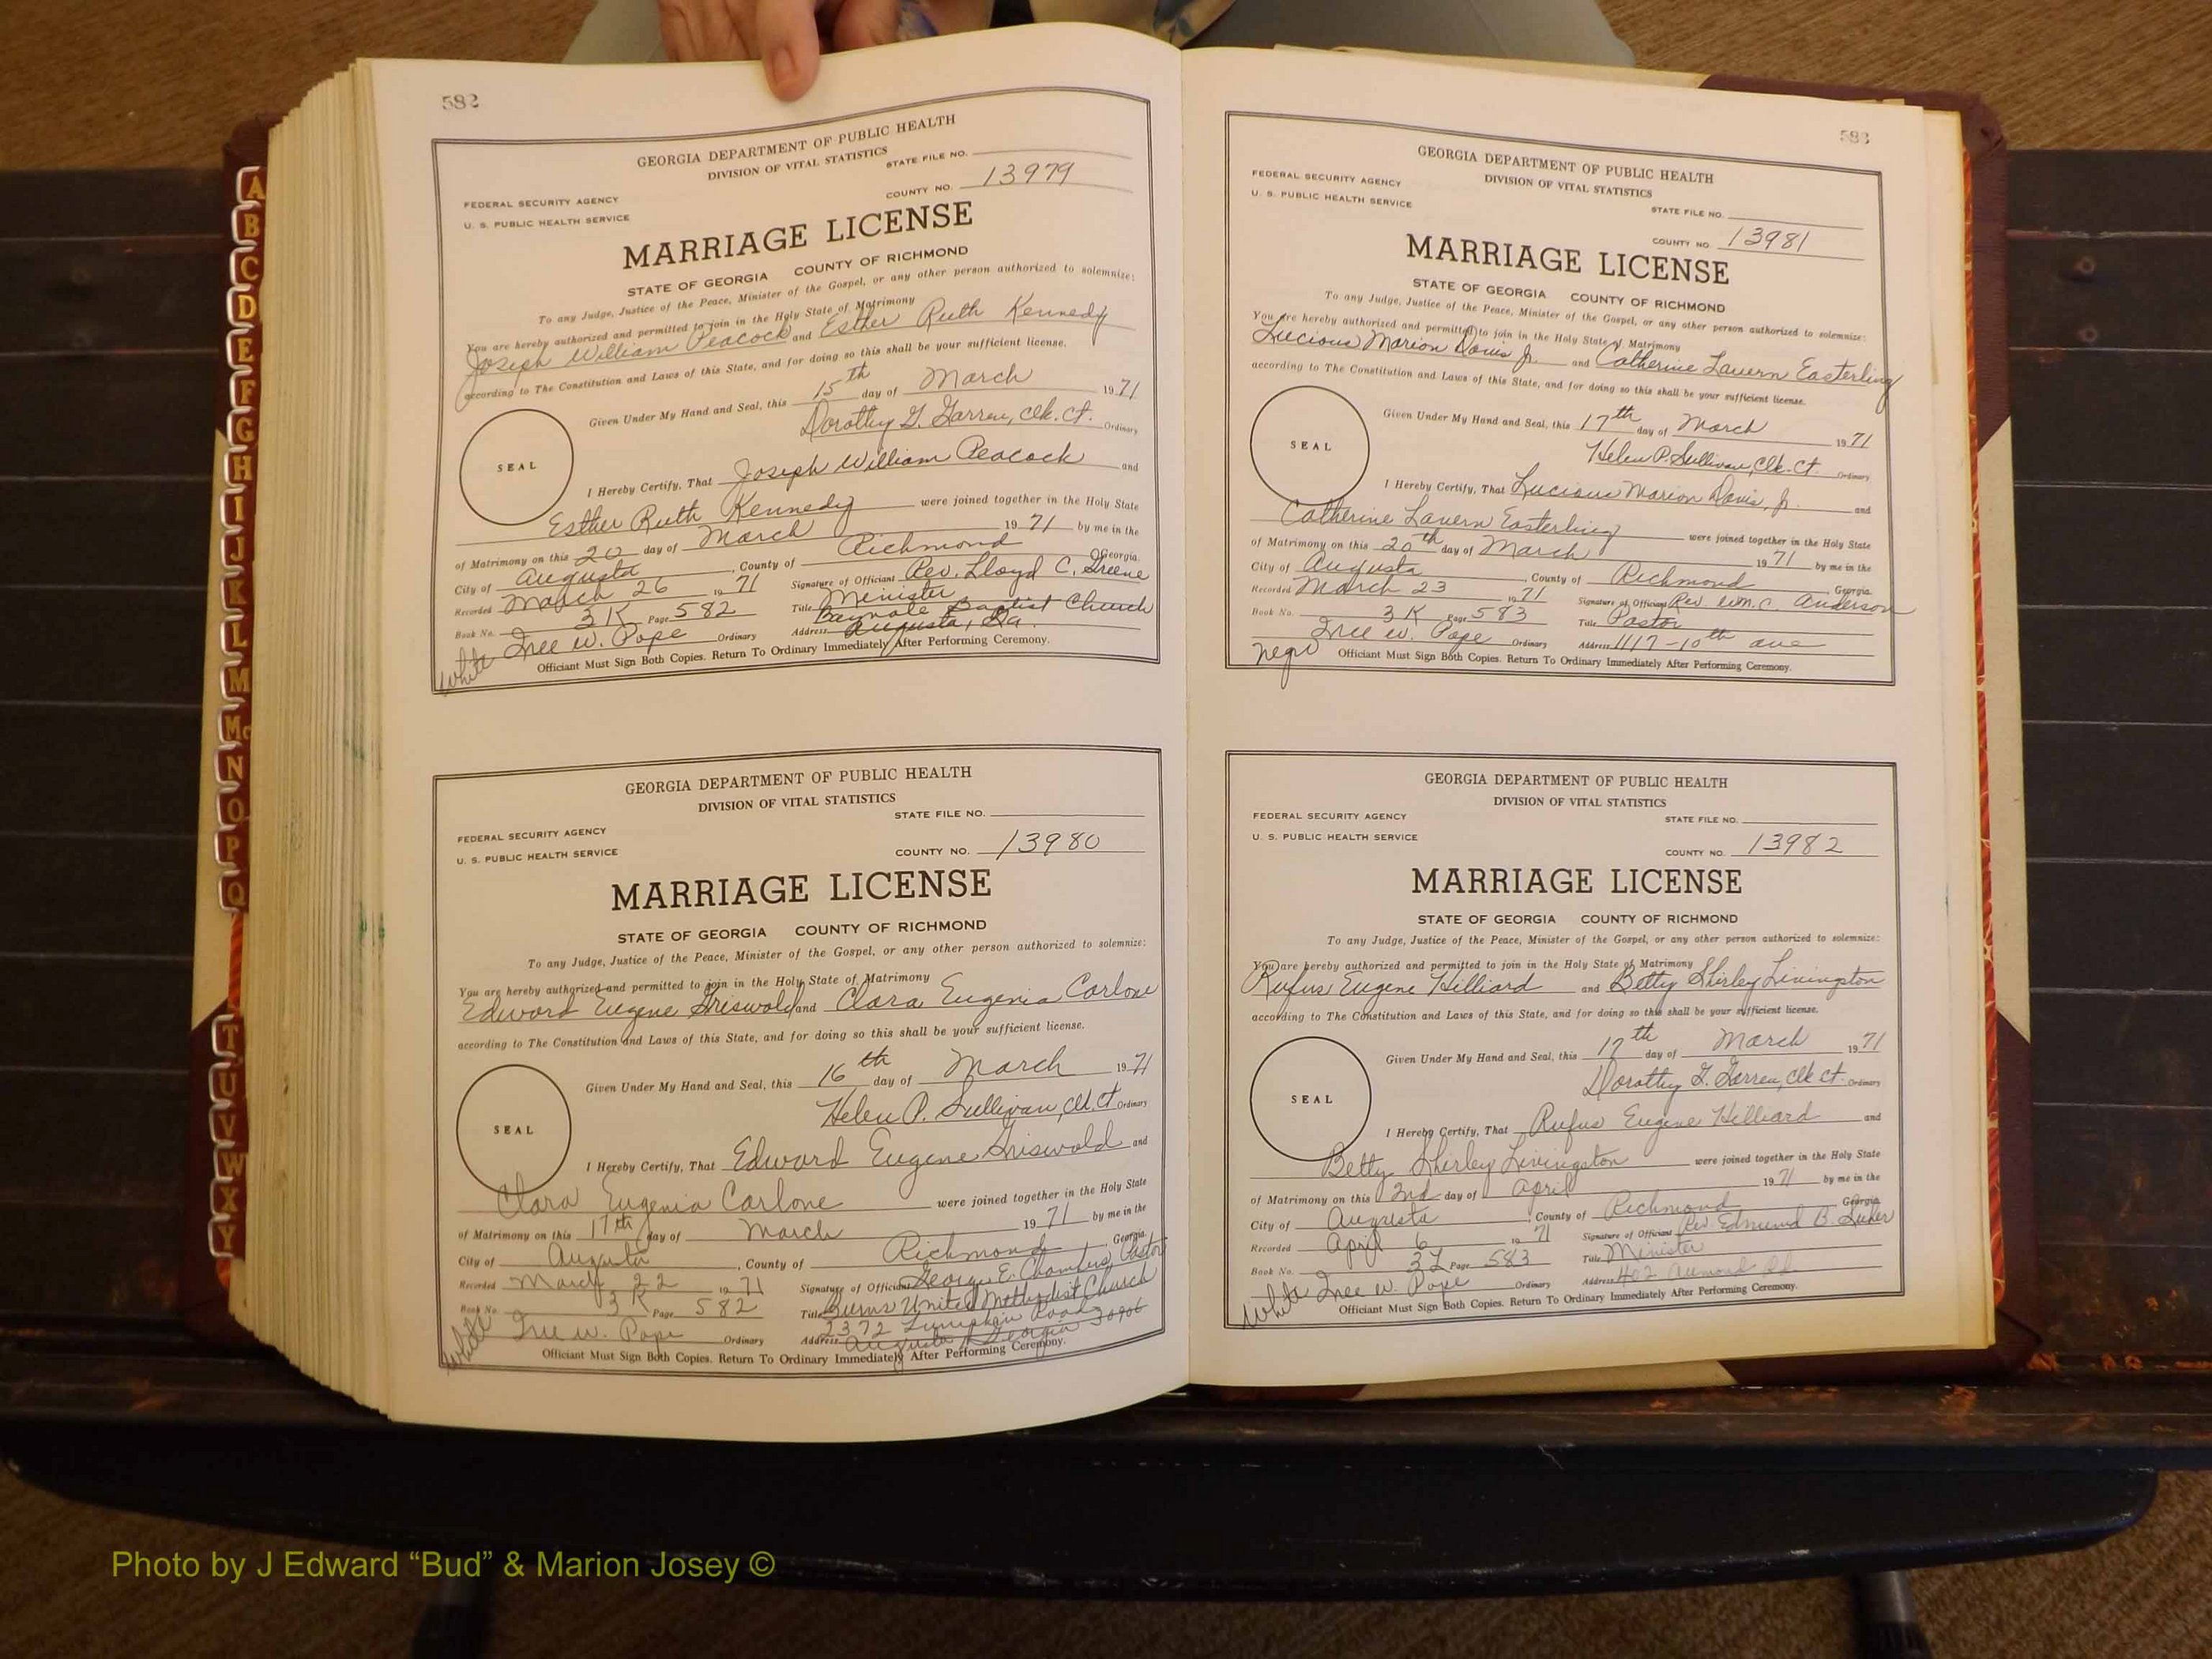 A
B
C
D
E
F
G
H
I
J
K
L
M
Mc
N
O
P
Q
T
U
V
W
X
Y
582
GEORGIA DEPARTMENT OF PUBLIC HEALTH
DIVISION OF VITAL STATISTICS
STATE FILE NO.
FEDERAL SECURITY AGENCY
U. S. PUBLIC HEALTH SERVICE
COUNTY NO. 13979
MARRIAGE LICENSE
STATE OF GEORGIA COUNTY OF RICHMOND
To any Judge, Justice of the Peace, Minister of the Gospel, or any other person authorized to solemnize:
You are hereby authorized and permitted to join in the Holy State of Matrimony
Joseph William Peacock and Esther Ruth Kennedy
according to The Constitution and Laws of this State, and for doing so this shall be your sufficient license.
Given Under My Hand and Seal, this 15th day of March 1971
Dorothy G. Garren, Clk. Ct. Ordinary
SEAL
I Hereby Certify, That Joseph William Peacock and
Esther Ruth Kennedy were joined together in the Holy State
of Matrimony on this 20 day of March 1971 by me in the
City of Augusta, County of Richmond Georgia.
Recorded March 26 1971 Signature of Officiant Rev. Lloyd C. Greene
Book No. 3K Page 582 Title Minister
Baptist Church
Tree W. Pope Ordinary Address Augusta, Ga.
White Officiant Must Sign Both Copies. Return To Ordinary Immediately After Performing Ceremony.
GEORGIA DEPARTMENT OF PUBLIC HEALTH
DIVISION OF VITAL STATISTICS
STATE FILE NO.
FEDERAL SECURITY AGENCY
U. S. PUBLIC HEALTH SERVICE
COUNTY NO. 13980
MARRIAGE LICENSE
STATE OF GEORGIA COUNTY OF RICHMOND
To any Judge, Justice of the Peace, Minister of the Gospel, or any other person authorized to solemnize:
You are hereby authorized and permitted to join in the Holy State of Matrimony
Edward Eugene Griswold and Clara Eugenia Carlone
according to The Constitution and Laws of this State, and for doing so this shall be your sufficient license.
Given Under My Hand and Seal, this 16th day of March 1971
Helen P. Sullivan, Clk. Ct. Ordinary
SEAL
I Hereby Certify, That Edward Eugene Griswold and
Clara Eugenia Carlone were joined together in the Holy State
of Matrimony on this 17th day of March 1971 by me in the
City of Augusta, County of Richmond, Georgia.
Recorded March 22 1971 Signature of Officiant George E. Chambers, Pastor
Book No. 3K Page 582 Title Burns United Methodist Church
2372 Lumpkin Road
Tree W. Pope Ordinary Address Augusta, Georgia 30906
White Officiant Must Sign Both Copies. Return To Ordinary Immediately After Performing Ceremony.
583
GEORGIA DEPARTMENT OF PUBLIC HEALTH
DIVISION OF VITAL STATISTICS
FEDERAL SECURITY AGENCY
U. S. PUBLIC HEALTH SERVICE
STATE FILE NO.
COUNTY NO. 13981
MARRIAGE LICENSE
STATE OF GEORGIA COUNTY OF RICHMOND
To any Judge, Justice of the Peace, Minister of the Gospel, or any other person authorized to solemnize:
You are hereby authorized and permitted to join in the Holy State of Matrimony
Lucious Marion Davis Jr. and Catherine Lavern Easterling
according to The Constitution and Laws of this State, and for doing so this shall be your sufficient license.
Given Under My Hand and Seal, this 17th day of March 1971
Helen P. Sullivan, Clk. Ct. Ordinary
SEAL
I Hereby Certify, That Lucious Marion Davis, Jr. and
Catherine Lavern Easterling were joined together in the Holy State
of Matrimony on this 20th day of March 1971 by me in the
City of Augusta, County of Richmond, Georgia.
Recorded March 23 1971 Signature of Officiant Rev. Wm. C. Anderson
Book No. 3K Page 583 Title Pastor
Tree W. Pope Ordinary Address 1117-10th ave
Negro Officiant Must Sign Both Copies. Return To Ordinary Immediately After Performing Ceremony.
GEORGIA DEPARTMENT OF PUBLIC HEALTH
DIVISION OF VITAL STATISTICS
FEDERAL SECURITY AGENCY
STATE FILE NO.
U. S. PUBLIC HEALTH SERVICE
COUNTY NO. 13982
MARRIAGE LICENSE
STATE OF GEORGIA COUNTY OF RICHMOND
To any Judge, Justice of the Peace, Minister of the Gospel, or any other person authorized to solemnize:
You are hereby authorized and permitted to join in the Holy State of Matrimony
Rufus Eugene Hilliard and Betty Shirley Livingston
according to The Constitution and Laws of this State, and for doing so this shall be your sufficient license.
Given Under My Hand and Seal, this 17th day of March 1971
Dorothy G. Garren, Clk Ct. Ordinary
SEAL
I Hereby Certify, That Rufus Eugene Hilliard and
Betty Shirley Livingston were joined together in the Holy State
of Matrimony on this 2nd day of April 1971 by me in the
City of Augusta, County of Richmond Georgia.
Recorded April 6 1971 Signature of Officiant Rev. Edmund B.
Book No. 3L Page 583 Title Minister
Tree W. Pope Ordinary Address 402 Aumond Rd
White Officiant Must Sign Both Copies. Return To Ordinary Immediately After Performing Ceremony.
Photo by J Edward “Bud” & Marion Josey ©